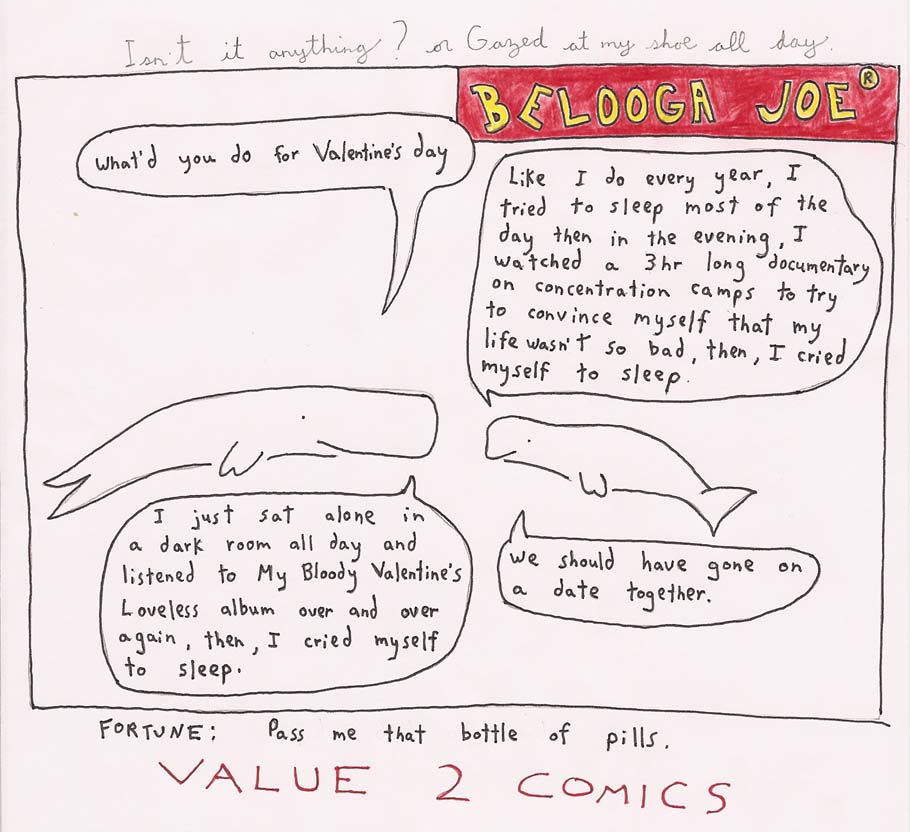 Isn't it anything? or Gazed at my shoe all day.
BELOOGA JOE®
What'd you do for Valentine's day
Like I do every year, I
tried to sleep most of the
day then in the evening, I
watched a 3hr long documentary
on concentration camps to try
to convince myself that my
life wasn't so bad, then, I cried
myself to sleep.
I just sat alone in
a dark room all day and
listened to My Bloody Valentine's
Loveless album over and over
again, then, I cried myself
to sleep.
we should have gone on
a date together.
FORTUNE: Pass me that bottle of pills.
VALUE 2 COMICS